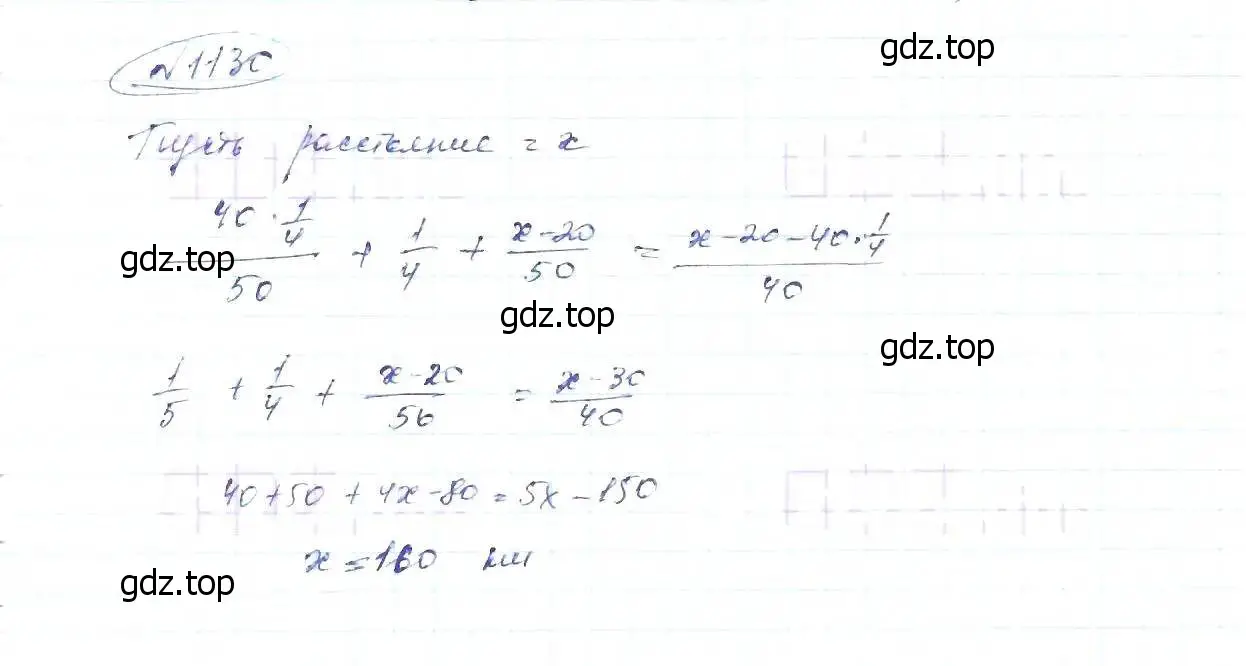 gdz.top
№1130
Пусть расстояние = x
(40 · 1/4)/50 + 1/4 + (x - 20)/50 = (x - 20 - 40 · 1/4)/40
gdz.top
gdz.top
gdz.top
1/5 + 1/4 + (x - 20)/50 = (x - 30)/40
40 + 50 + 4x - 80 = 5x - 150
x = 160 км
gdz.top